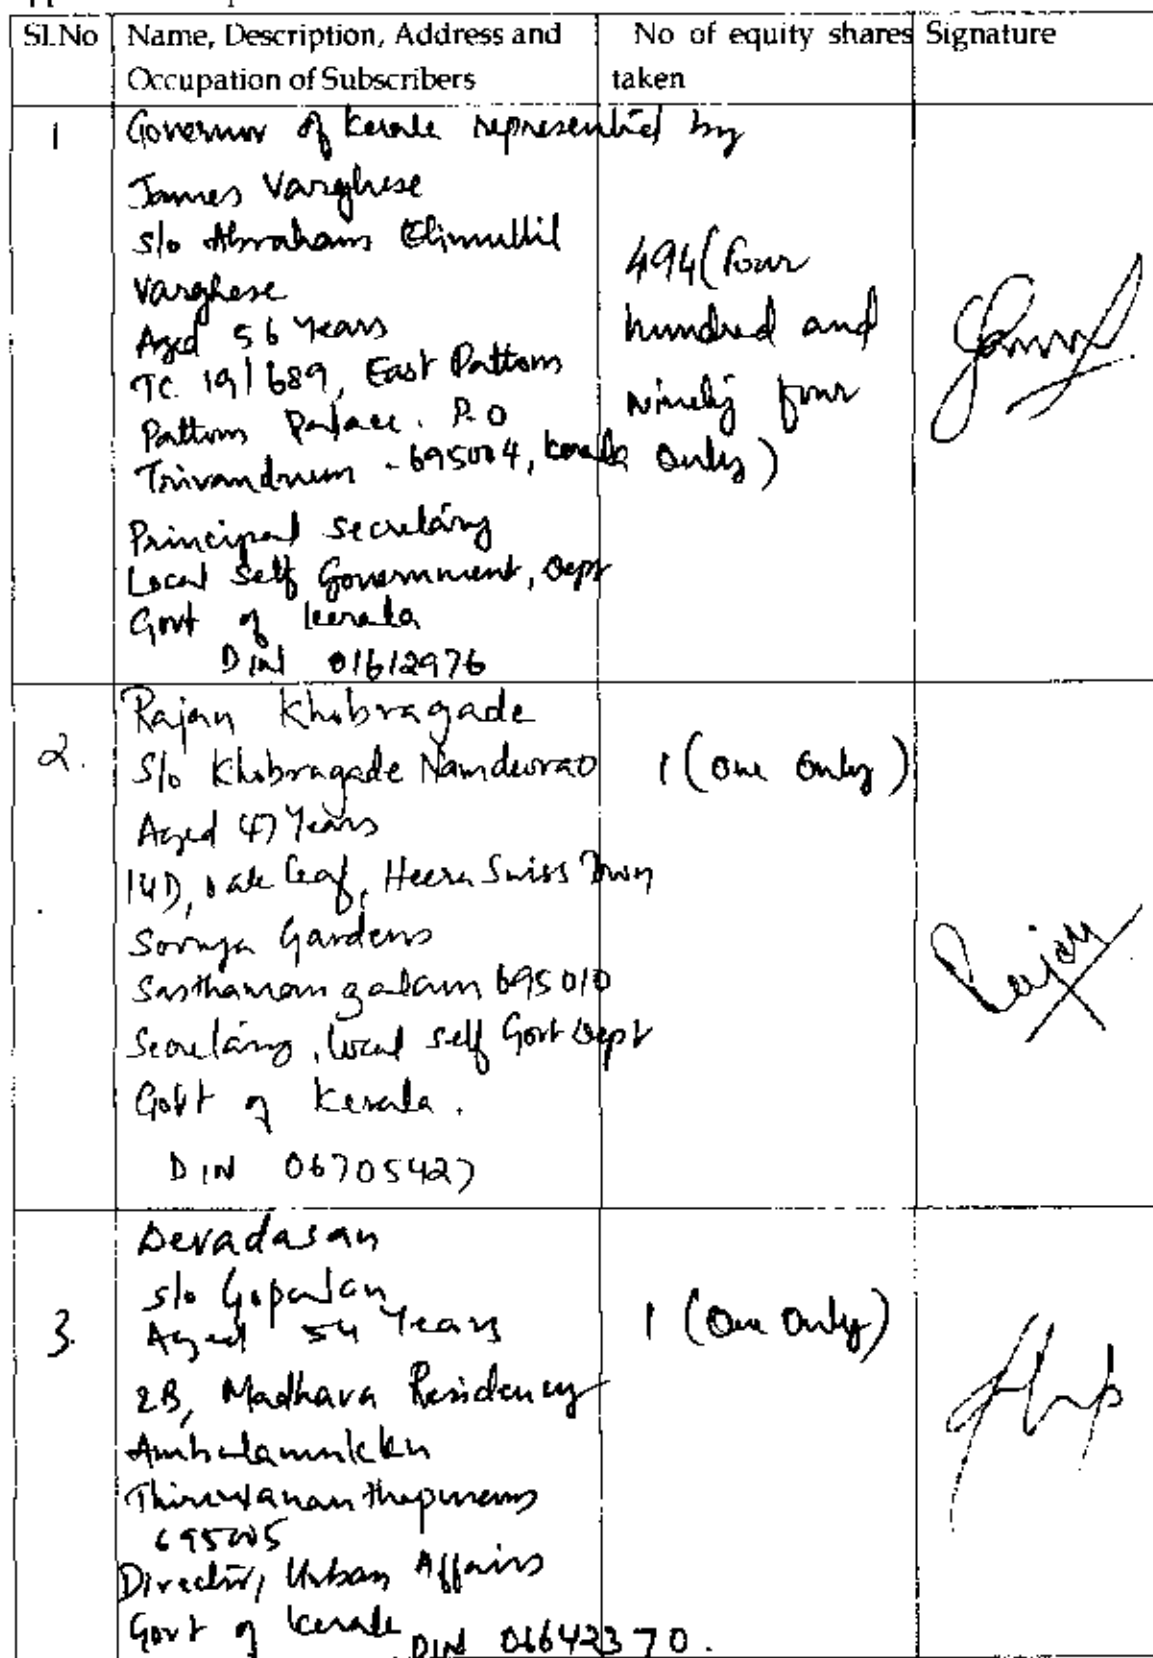 Sl.No Name, Description, Address and No of equity shares Signature
Occupation of Subscribers taken
1 Governor of Kerala represented by
James Varghese
S/o Abraham
Varghese
Aged 56 Years
TC. 19/689, East Pattom
Pattom Palace. P.O
Trivandrum - 695004, Kerala
Principal Secretary
Local Self Government, Dept
Govt of Kerala
DIN 01612976
494 (Four
hundred and
Ninety four
Only)
2. Rajan Khobragade
S/o Khobragade Namdeorao
Aged 47 Years
14D, Oak Leaf, Heera Swiss Town
Gardens
Sasthamangalam 695010
Secretary, Local Self Govt Dept
Govt of Kerala.
DIN 06705427
1 (One Only)
Rajan
3. Devadasan
S/o Gopalan
Aged 54 Years
2B, Madhava Residency
Ambalamukku
Thiruvananthapuram
695005
Director, Urban Affairs
Govt of Kerala DIN 06642370.
1 (One Only)